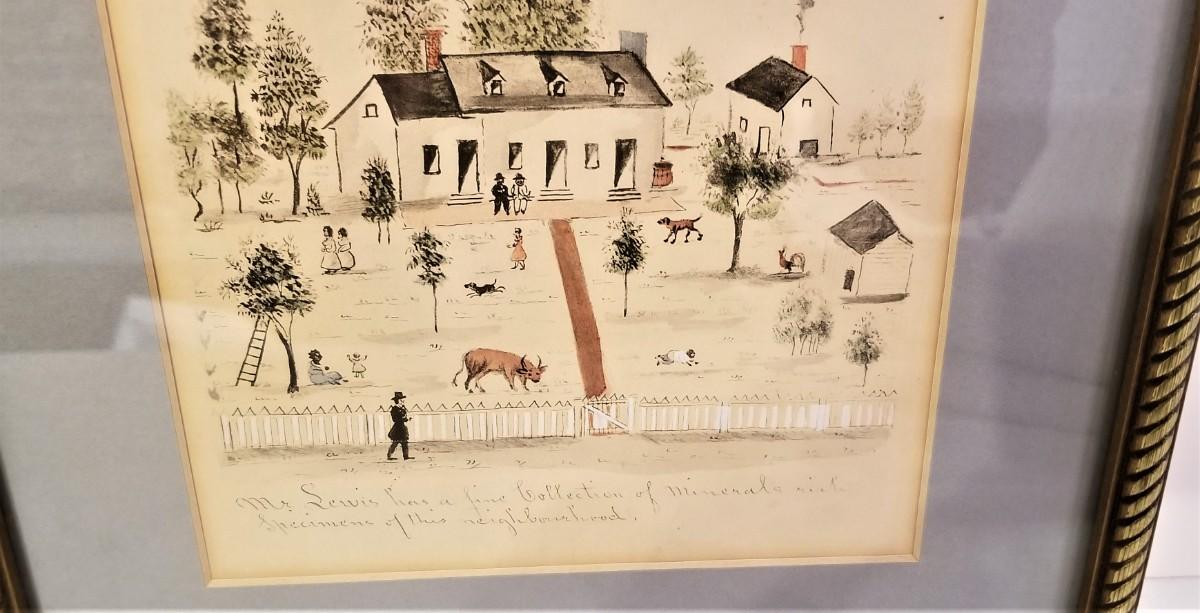 Mr. Lewis has a fine Collection of Minerals rich
Specimens of this neighbourhood.